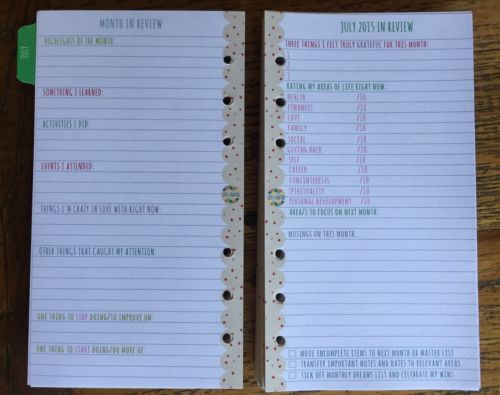 JULY
MONTH IN REVIEW
HIGHLIGHTS OF THE MONTH:
SOMETHING I LEARNED:
ACTIVITIES I DID:
EVENTS I ATTENDED:
THINGS I'M CRAZY IN LOVE WITH RIGHT NOW:
OTHER THINGS THAT CAUGHT MY ATTENTION:
ONE THING TO STOP DOING/TO IMPROVE ON:
ONE THING TO START DOING/DO MORE OF:
JULY 2015 IN REVIEW
THREE THINGS I FELT TRULY GRATEFUL FOR THIS MONTH:
1
2
3
RATING MY AREAS OF LIFE RIGHT NOW:
HEALTH /10
FINANCES /10
LOVE /10
FAMILY /10
SOCIAL /10
GIVING BACK /10
SELF /10
CAREER /10
FUN/INTERESTS /10
SPIRITUALITY /10
PERSONAL DEVELOPMENT /10
AREA/S TO FOCUS ON NEXT MONTH:
MUSINGS ON THIS MONTH...
MOVE INCOMPLETE ITEMS TO NEXT MONTH OR MASTER LIST
TRANSFER IMPORTANT NOTES AND DATES TO RELEVANT AREAS
TICK OFF MONTHLY DREAMS LIST AND CELEBRATE MY WINS